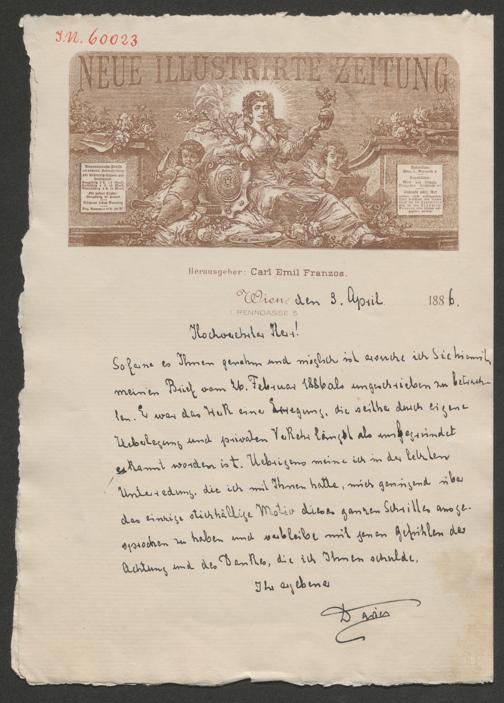 I.N. 60023
NEUE ILLUSTRIRTE ZEITUNG
Herausgeber: Carl Emil Franzos.
Wien, den 3. April 1886.
I RENNGASSE 5
Hochverehrter Herr!
Soferne es Ihnen genehm und möglich ist ersuche ich Sie hiemit,
meinen Brief vom 26. Februar 1886 als ungeschrieben zu betrach-
ten. Er war das Werk einer Erregung, die seither durch eigene
Ueberlegung und privaten Verkehr längst als unbegründet
erkannt worden ist. Uebrigens meine ich in der letzten
Unterredung, die ich mit Ihnen hatte, mich genügend über
das einzige stichhältige Motiv dieses ganzen Schrittes ausge-
sprochen zu haben und verbleibe mit jenen Gefühlen der
Achtung und des Dankes, die ich Ihnen schulde,
Ihr ergebener